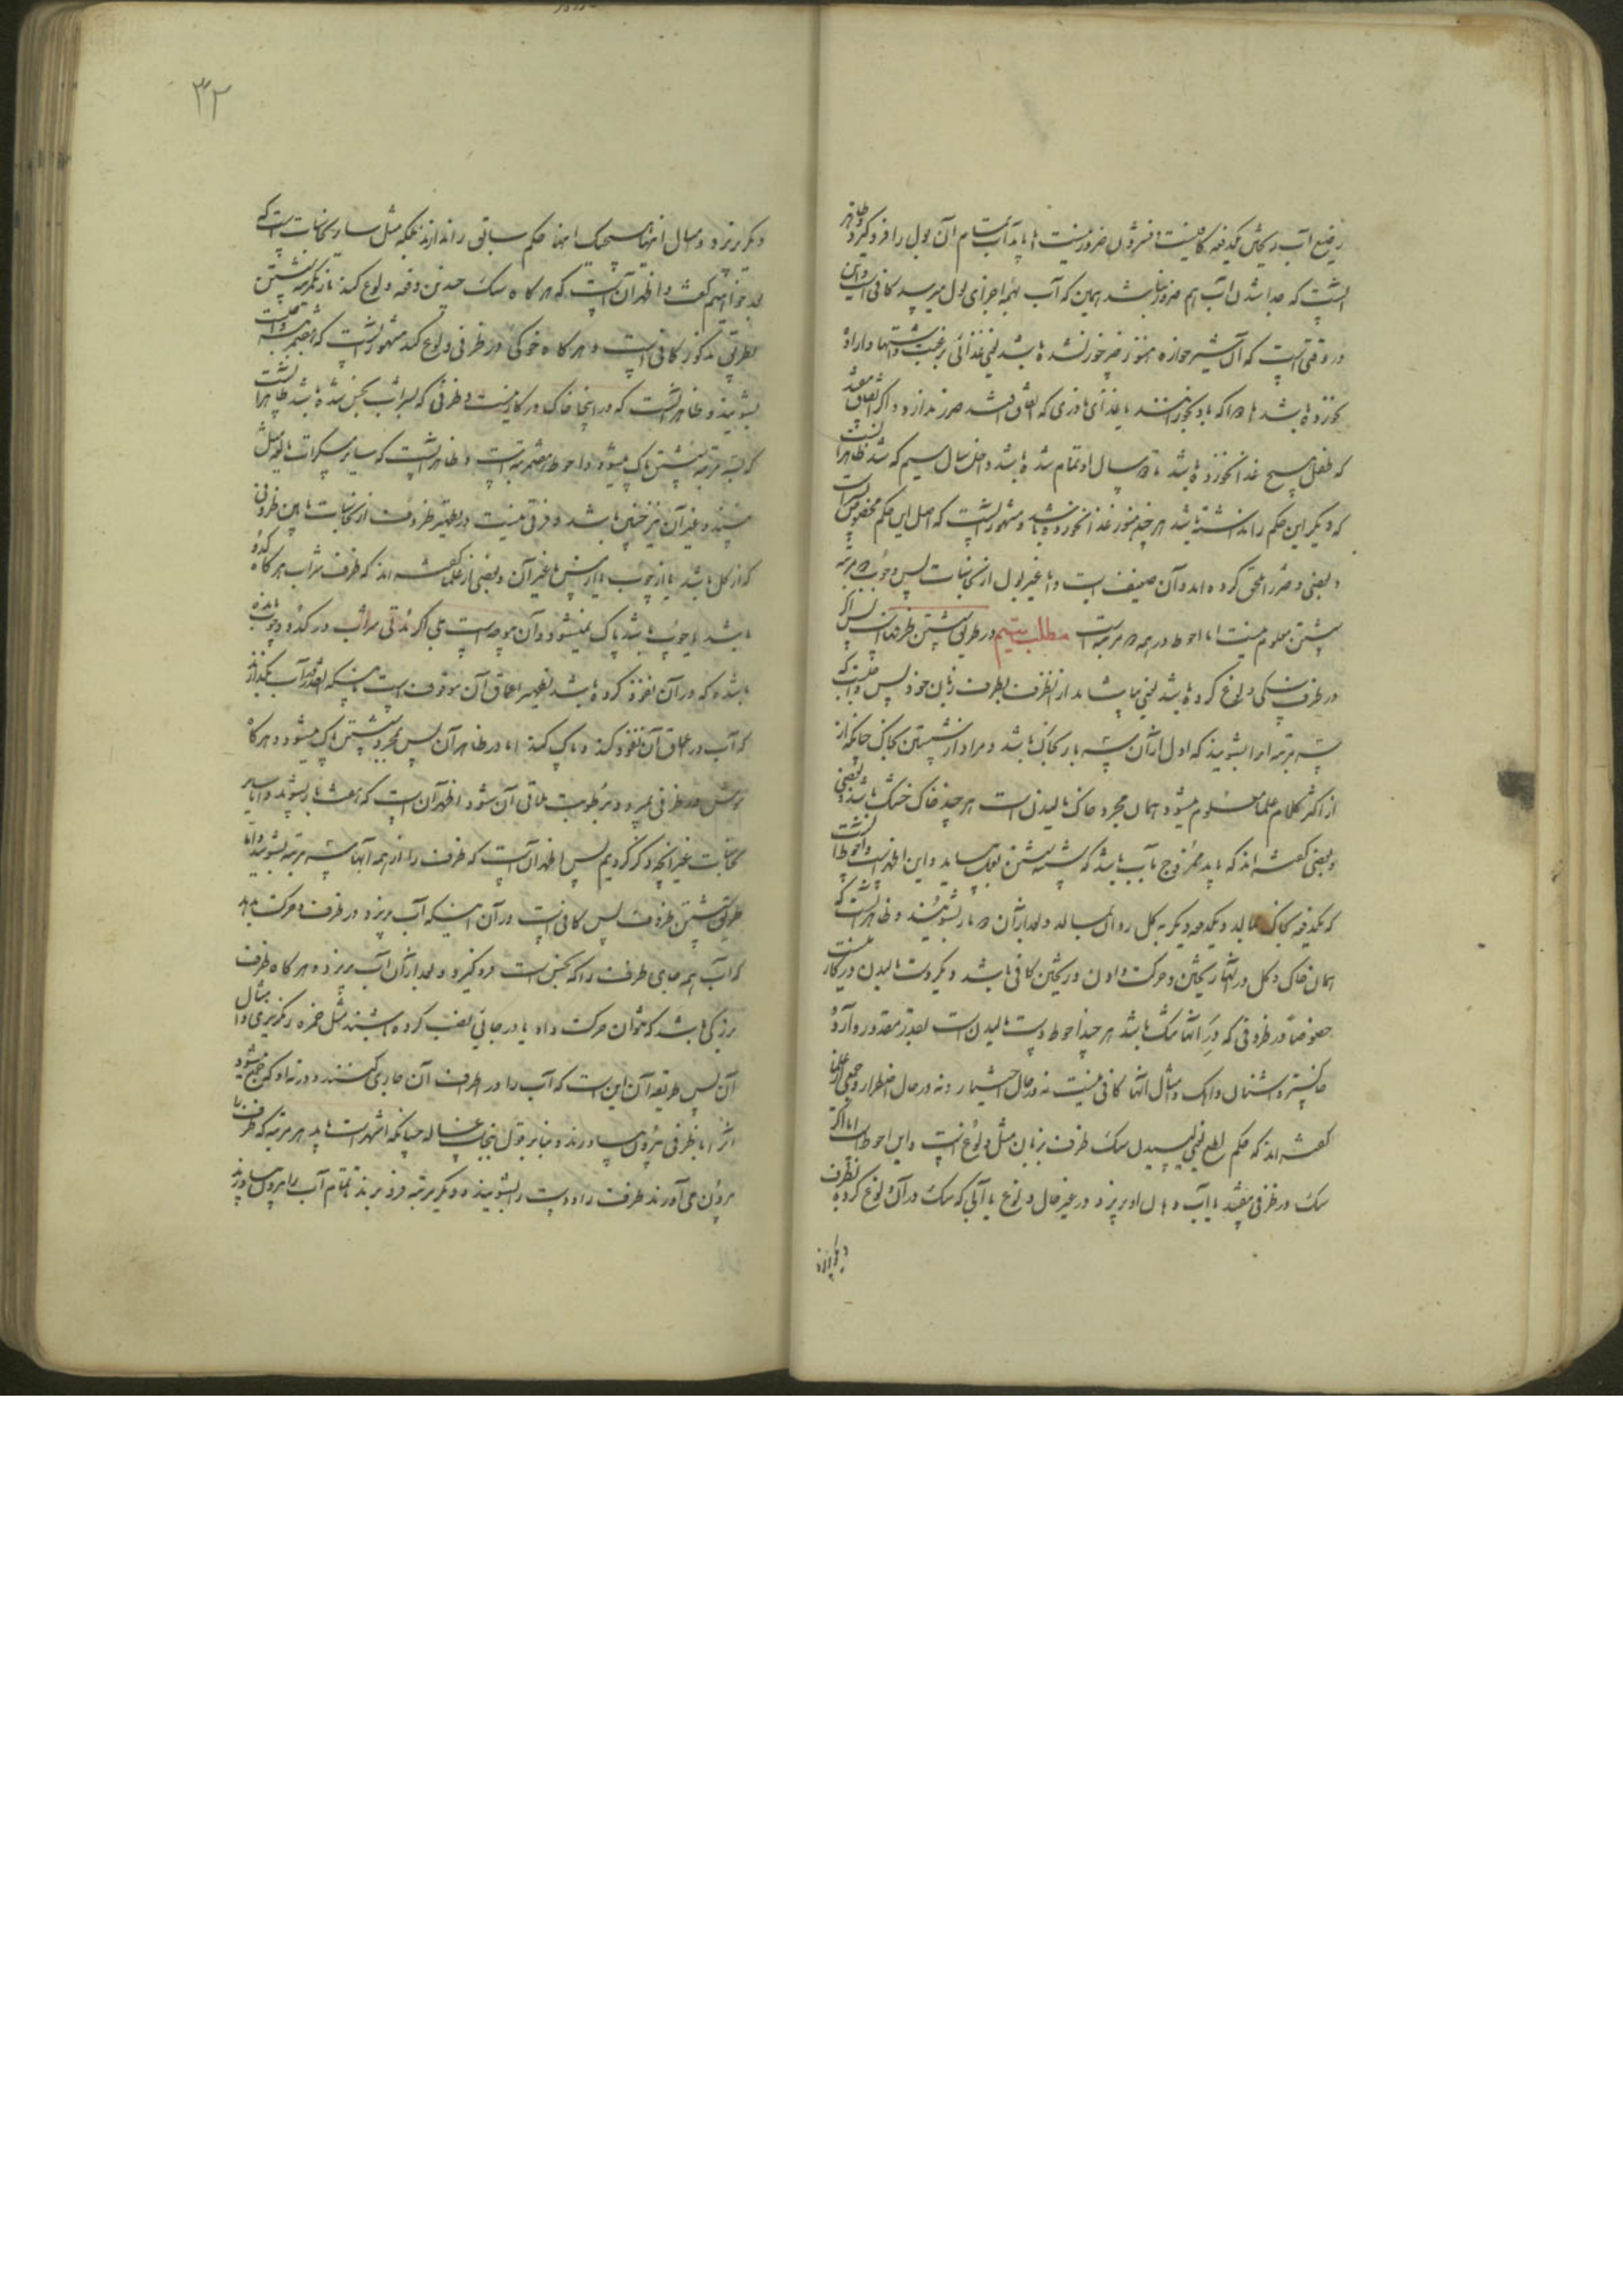 رضیع آب ریختن یکدفعه کافیست و فشردن ضرور نیست اما باید آب تمام آن بول را فرو گیرد و ظاهر
آنست که جدا شدن آب هم ضرور نباشد همین که آب بهمه اجزای بول میرسد کافی است و این
در وقتی است که آن شیر خواره هنوز غذا خور نشده باشد یعنی غذائی برغبت و اشتها و اراده
نخورده باشد اما آنکه باو بخورانند یا غذای نادری که اتفاق افتد ضرر ندارد و اگر اتفاق افتد
که طفل هیچ غذا نخورده باشد تا دو سال او تمام شده باشد و داخل سال سیم که شد ظاهرا آنست
که دیگر این حکم را نداشته باشد هر چند هنوز غذا نخورده باشد و مشهور آنست که اصل این حکم مخصوص پسر است
و بعضی دختر را ملحق کرده اند و آن ضعیف است و اما غیر بول از نجاسات پس وجوب دو مرتبه
شستن معلوم نیست اما احوط در همه دو مرتبه است مطلب بیستم در طریق شستن ظرفهاست پس اگر
در ظرف سگی ولوغ کرده باشد یعنی بیاشامد از آنظرف بطرف زبان خود پس واجبست که
سه مرتبه او را بشویند که اول از آن سه بار بخاک باشد و مراد از شستن بخاک چنانکه از
از اکثر کلام علما معلوم میشود همان مجرد خاک مالیدن است هر چند خاک خشک باشد و بعضی
و بعضی گفته اند که باید ممزوج بآب باشد که شستن بعمل بیاید و این اظهر است و احوط آنست
که یکدفعه بخاک بمالد و یکدفعه دیگر به گل روان بمالد و بعد از آن دو بار بشویند و ظاهر آنست که
همان خاک و گل در آنها ریختن و حرکت دادن و ریختن کافی باشد و دیگر دست مالیدن در کار نیست
خصوصا در ظروفی که در آنها تنگ باشد هر چند احوط دست مالیدن است بقدر مقدور و آرد و
خاکستر و اشنان و آهک و امثال آنها کافی نیست نه در حال اختیار و نه در حال اضطرار و جمعی از علما
گفته اند که حکم لطع یعنی لیسیدن سگ ظرف را بزبان مثل ولوغ است و این احوط است اما اگر
سگ در ظرفی بیفتد یا آب دهان او بریزد در غیر حال ولوغ یا آبی که سگ در آن ولوغ کرده بظرف
دیگر بریزد
۳۲
دیگر بریزد و امثال اینها هیچیک اینها حکم سابق را ندارند بلکه مثل سایر نجاسات است که
بعد خواهیم گفت و اظهر آن است که هر گاه سگ چندین دفعه ولوغ کند باز یکمرتبه شستن
بطریق مذکور کافی است و هر گاه خوکی در ظرفی ولوغ کند مشهور آنست که هفتمرتبه واجبست
بشویند و ظاهر آنست که در اینجا خاک در کار نیست و ظرفی که بشراب نجس شده باشد ظاهرا آنست
که بسه مرتبه شستن پاک میشود و احوط هفتمرتبه است و ظاهر آنست که سایر مسکرات مایعه مثل
نبیذ و غیر آن نیز چنین باشد و فرقی نیست در تطهیر ظروف از نجاسات ما بین ظروفی
که از گل باشد یا از چوب یا از مس یا غیر آن و بعضی از علما گفته اند که ظرف شراب هر گاه کدو
باشد یا چوب باشد پاک نمیشود و آن موجه است بلی اگر مدتی شراب در کدو و چوب مانده
باشد که در آن نفوذ کرده باشد تطهیر اعماق آن موقوف است باینکه آنقدر در آب بگذارند
که آب در اعماق آن نفوذ کند و پاک کند اما در ظاهر آن پس بمجرد شستن پاک میشود و هر گاه
موش در ظرفی بمیرد و برطوبت ملاقی آن شود اظهر آن است که هفت بار بشویند و اما سایر
نجاسات غیر آنچه ذکر کردیم پس اظهر آن است که ظرف را از همه آنها سه مرتبه بشویند و اما
طریق شستن ظروف پس کافی است در آن اینکه آب بریزد در ظرف و حرکت بدهد
که آب همه جای ظرف را که نجس است فرو گیرد و بعد از آن آب بریزد و هر گاه ظرف
بزرگی باشد که نتوان حرکت داد یا در جائی نصب کرده باشند مثل خمره رنگرزی و امثال
آن پس طریقه آن این است که آب را در اطراف آن جاری کنند و در ته او که جمع شود
آنرا بظرفی بیرون بیاورند و بنا بر قول بنجاست غساله چنانکه اشهر است باید هر مرتبه که ظرف را
بیرون می آورند ظرف را و دست را بشویند و دیگر مرتبه فرو برند تا تمام آب را بیرون بیاورند